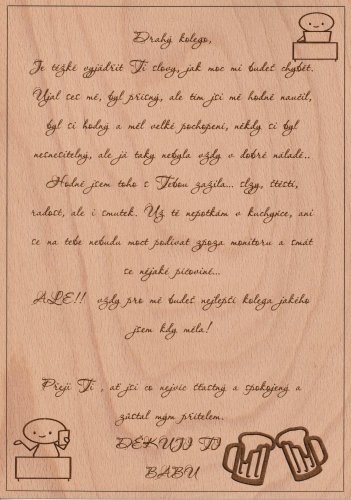 Drahý kolego,
Je těžké vyjádřit Ti slovy, jak moc mi budeš chybět.
Ujal ses mě, byl přísný, ale tím jsi mě hodně naučil,
byl si hodný a měl velké pochopení, někdy si byl
nesnesitelný, ale já taky nebyla vždy v dobré náladě..
Hodně jsem toho s Tebou zažila... slzy, štěstí,
radost, ale i smutek. Už tě nepotkám v kuchyňce, ani
se na tebe nebudu moct podívat zpoza monitoru a smát
se nějaké pičovině...
ALE!!! vždy pro mě budeš nejlepší kolega jakého
jsem kdy měla!
Přeji Ti , ať jsi co nejvíc šťastný a spokojený a
zůstal mým přítelem.
DĚKUJI TI
BABU